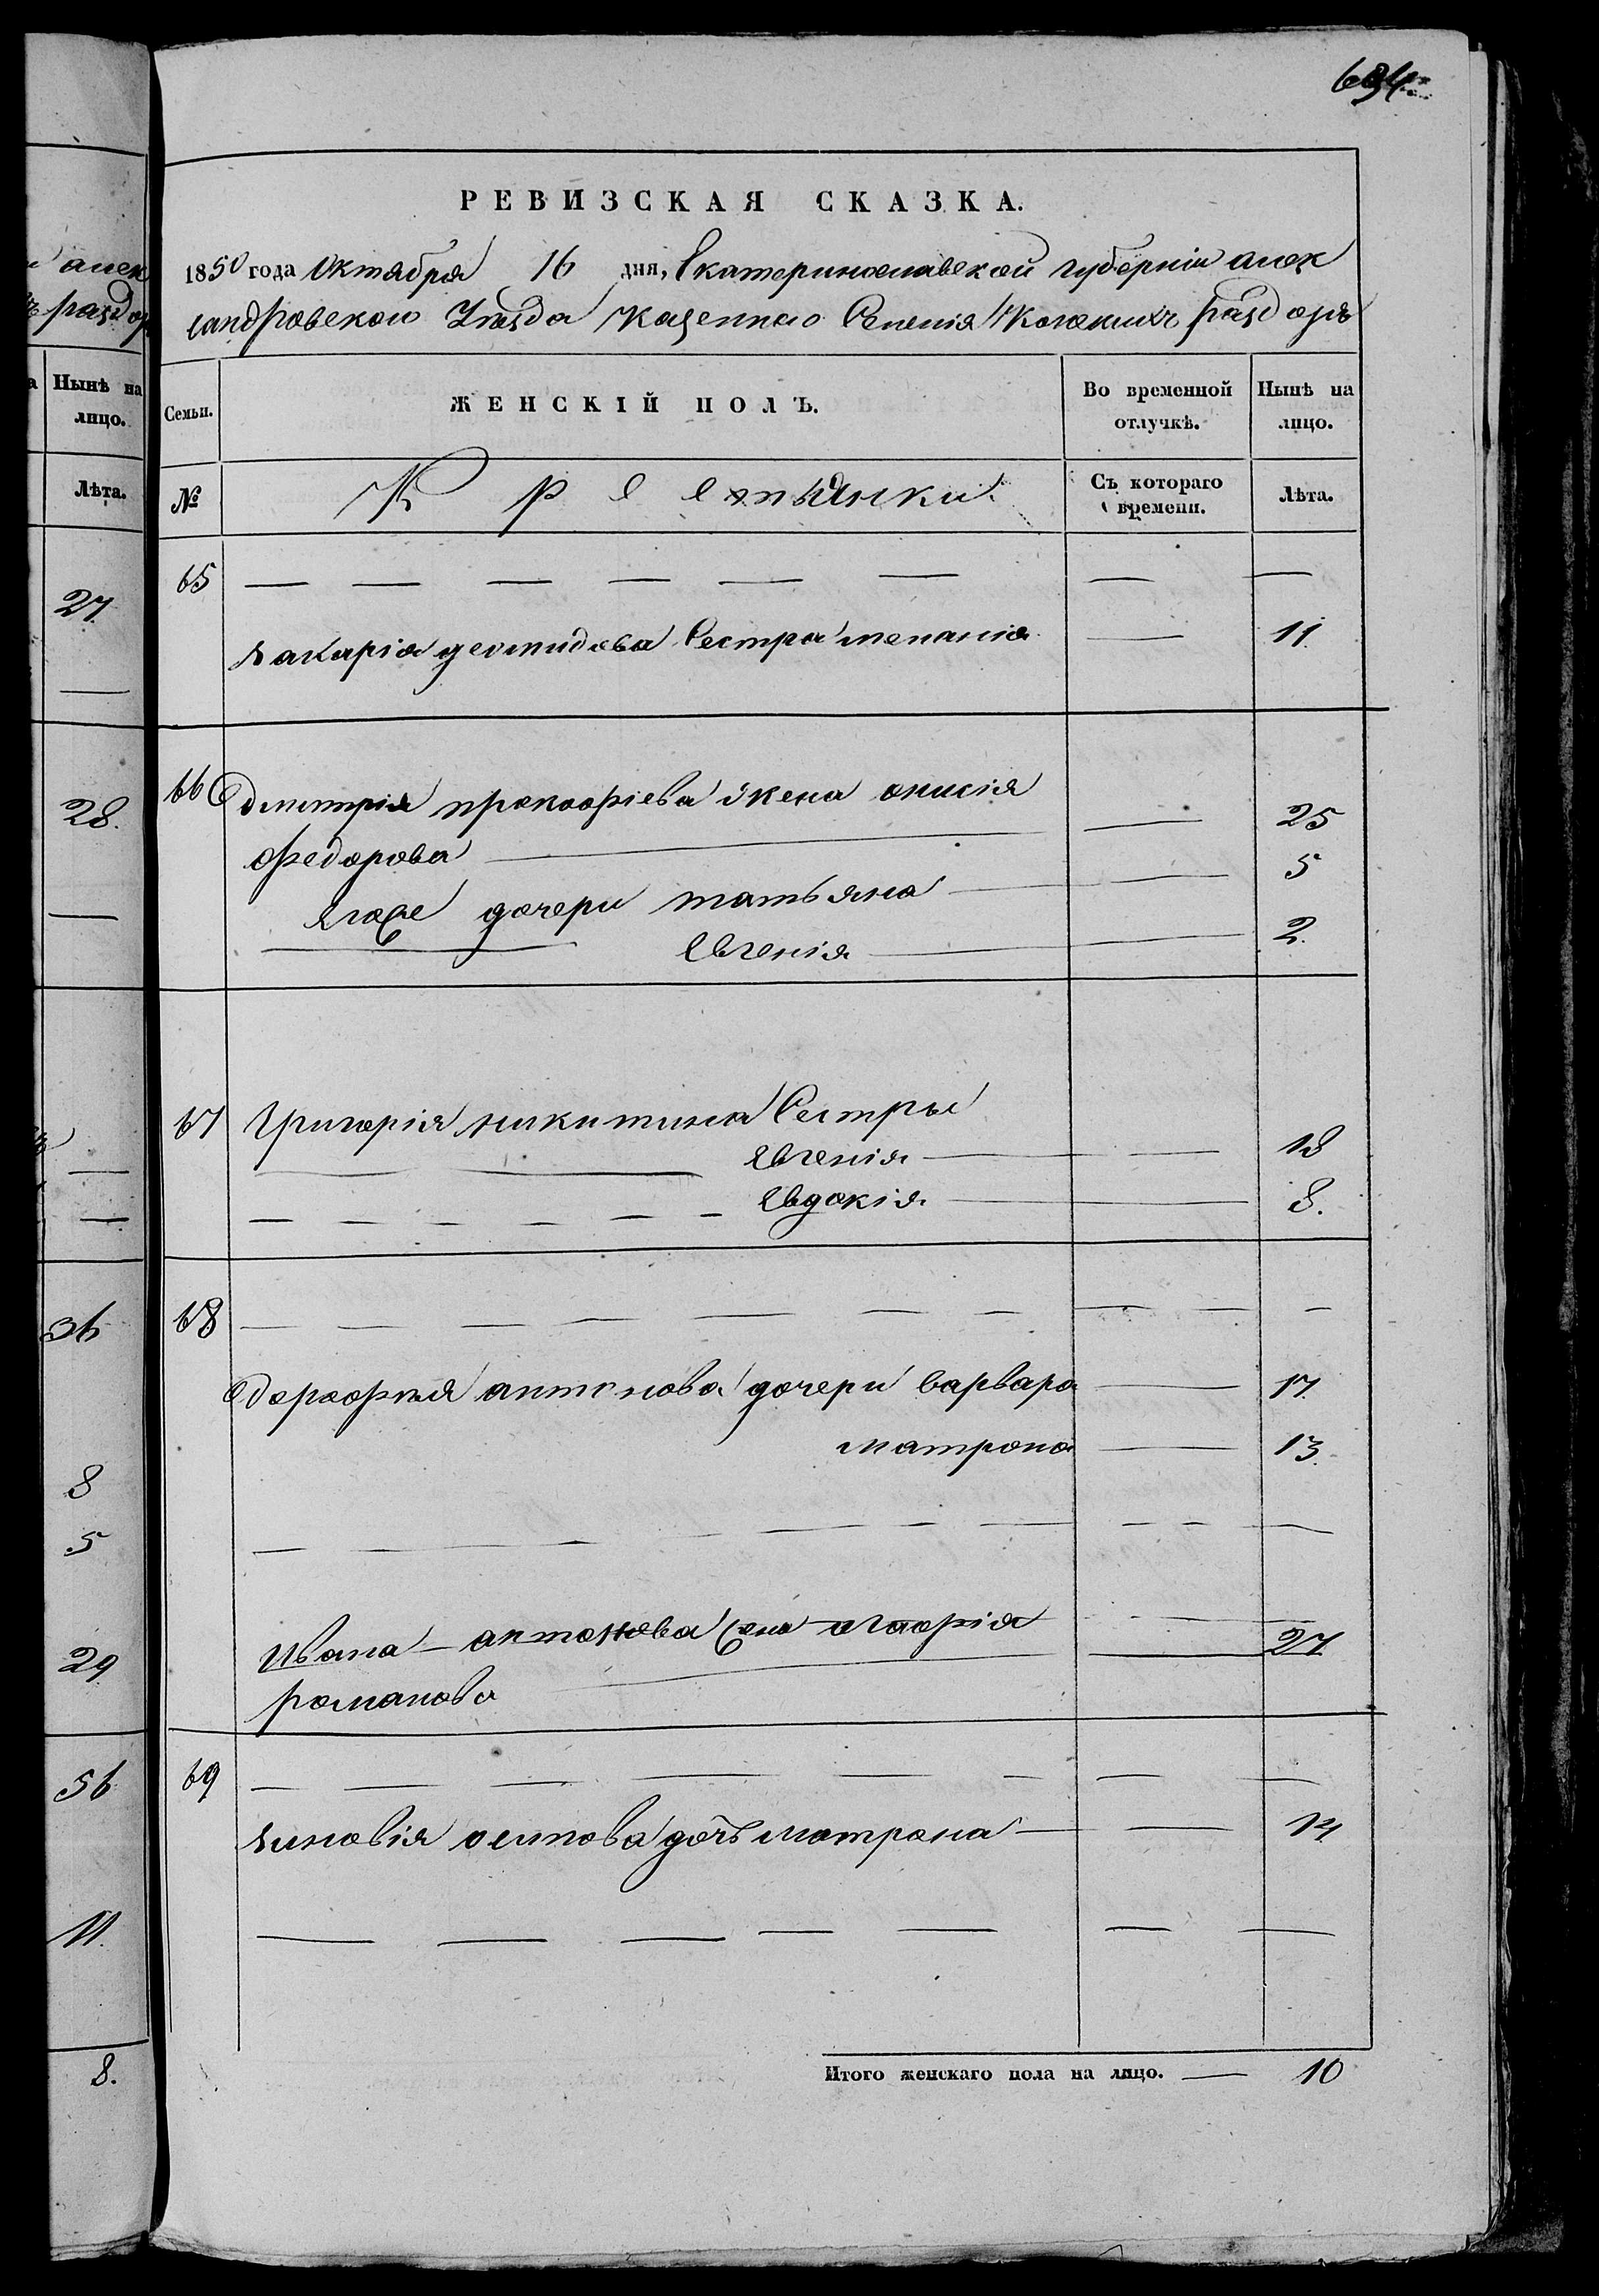 694
РЕВИЗСКАЯ СКАЗКА.
1850 года Октября 16 дня, Екатеринославской губерніи алек
сандровского Уезда казенного Селенія Конскихъ раздоръ
алек
раздор
Нынѣ на лицо.
Лѣта.
27
—
28.
—
—
—
36
8
5
29
56
11.
8.
Семьи. ЖЕНСКІЙ ПОЛЪ. Во временной отлучкѣ. Нынѣ на лицо.
№ Крестьянки. Съ котораго времени. Лѣта.
65 — — — — — — — —
закарія деомидова Сестра меланія — 11
66 дмитрія прокофіева жена анисія
федорова — — 25
его же дочери татьяна — — 5
— евгенія — — 2.
67 Григорія никитина Сестры
— — евгенія — — 18
— — — — — — евдокія — — 8.
68 — — — — — — — — — —
дорофея антонова дочери варвара — 17
матрона — 13
— — — — — — — — — —
Ивана — антонова жена агафія
романова — — 27
69 — — — — — — — —
зиновія осипова дочь матрона — — 14
— — — — — — —
Итого женскаго пола на лицо. — 10